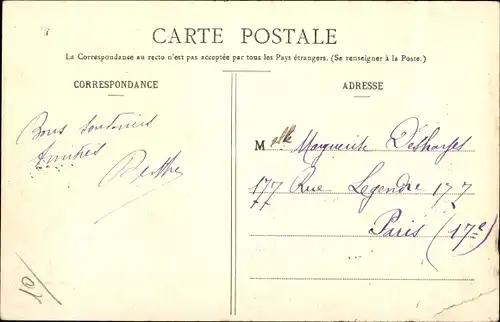 CARTE POSTALE
La Correspondance au recto n'est pas acceptée par tous les Pays étrangers. (Se renseigner à la Poste.)
CORRESPONDANCE
Bons souvenirs
Amitiés
Berthe
ADRESSE
Melle Marguerite Désharges
177 Rue Legendre 177
Paris (17e)
10